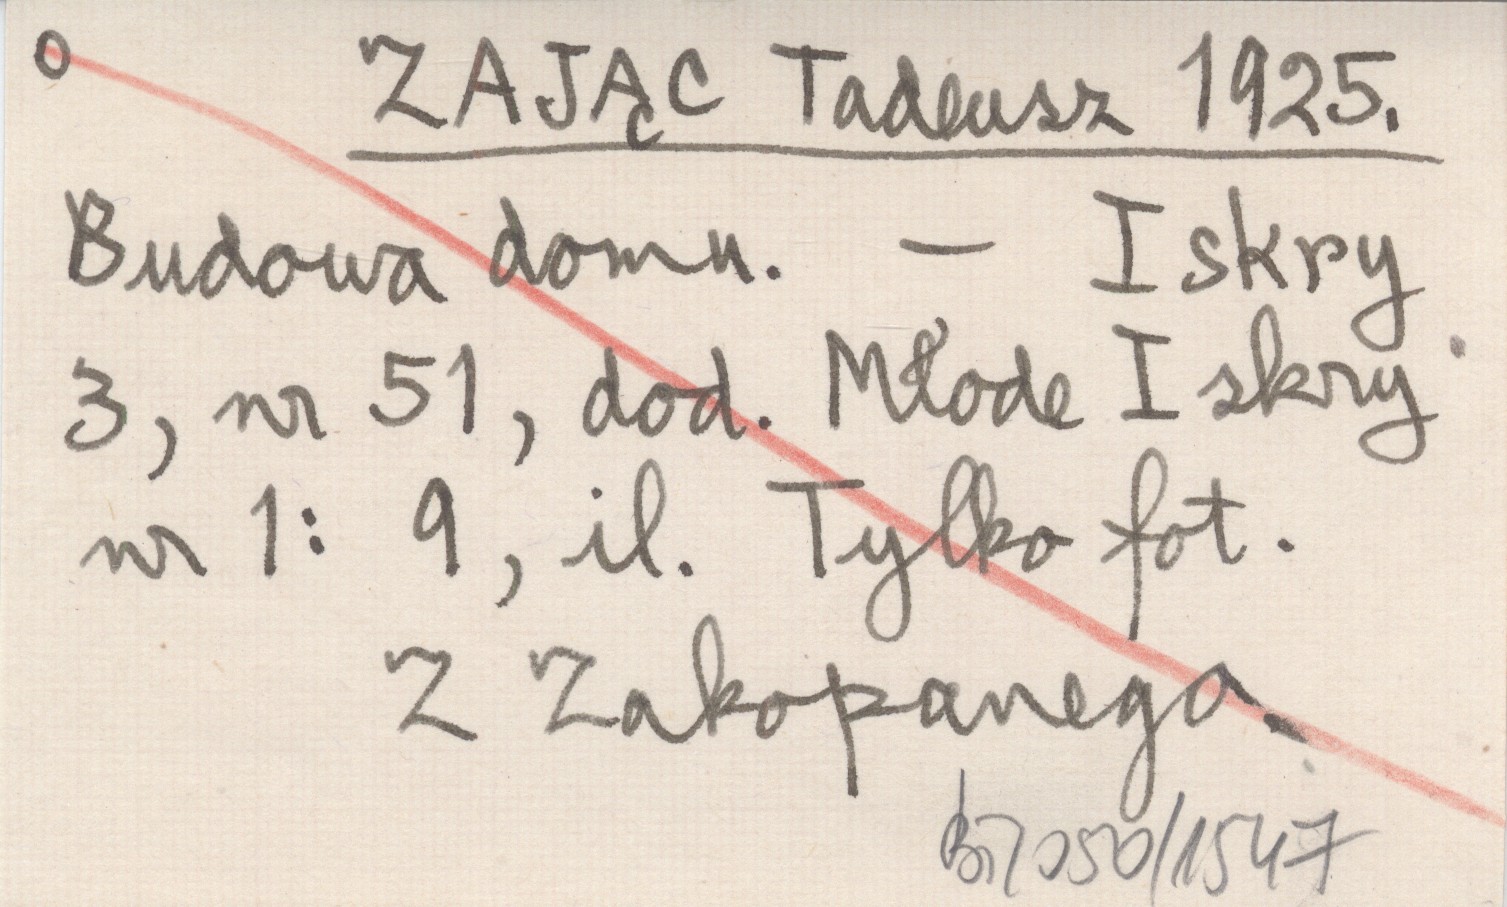 o ZAJĄC Tadeusz 1925.
Budowa domu. — Iskry
3, nr 51, dod. Młode Iskry
nr 1: 9, il. Tylko fot.
Z Zakopanego.
050/1547